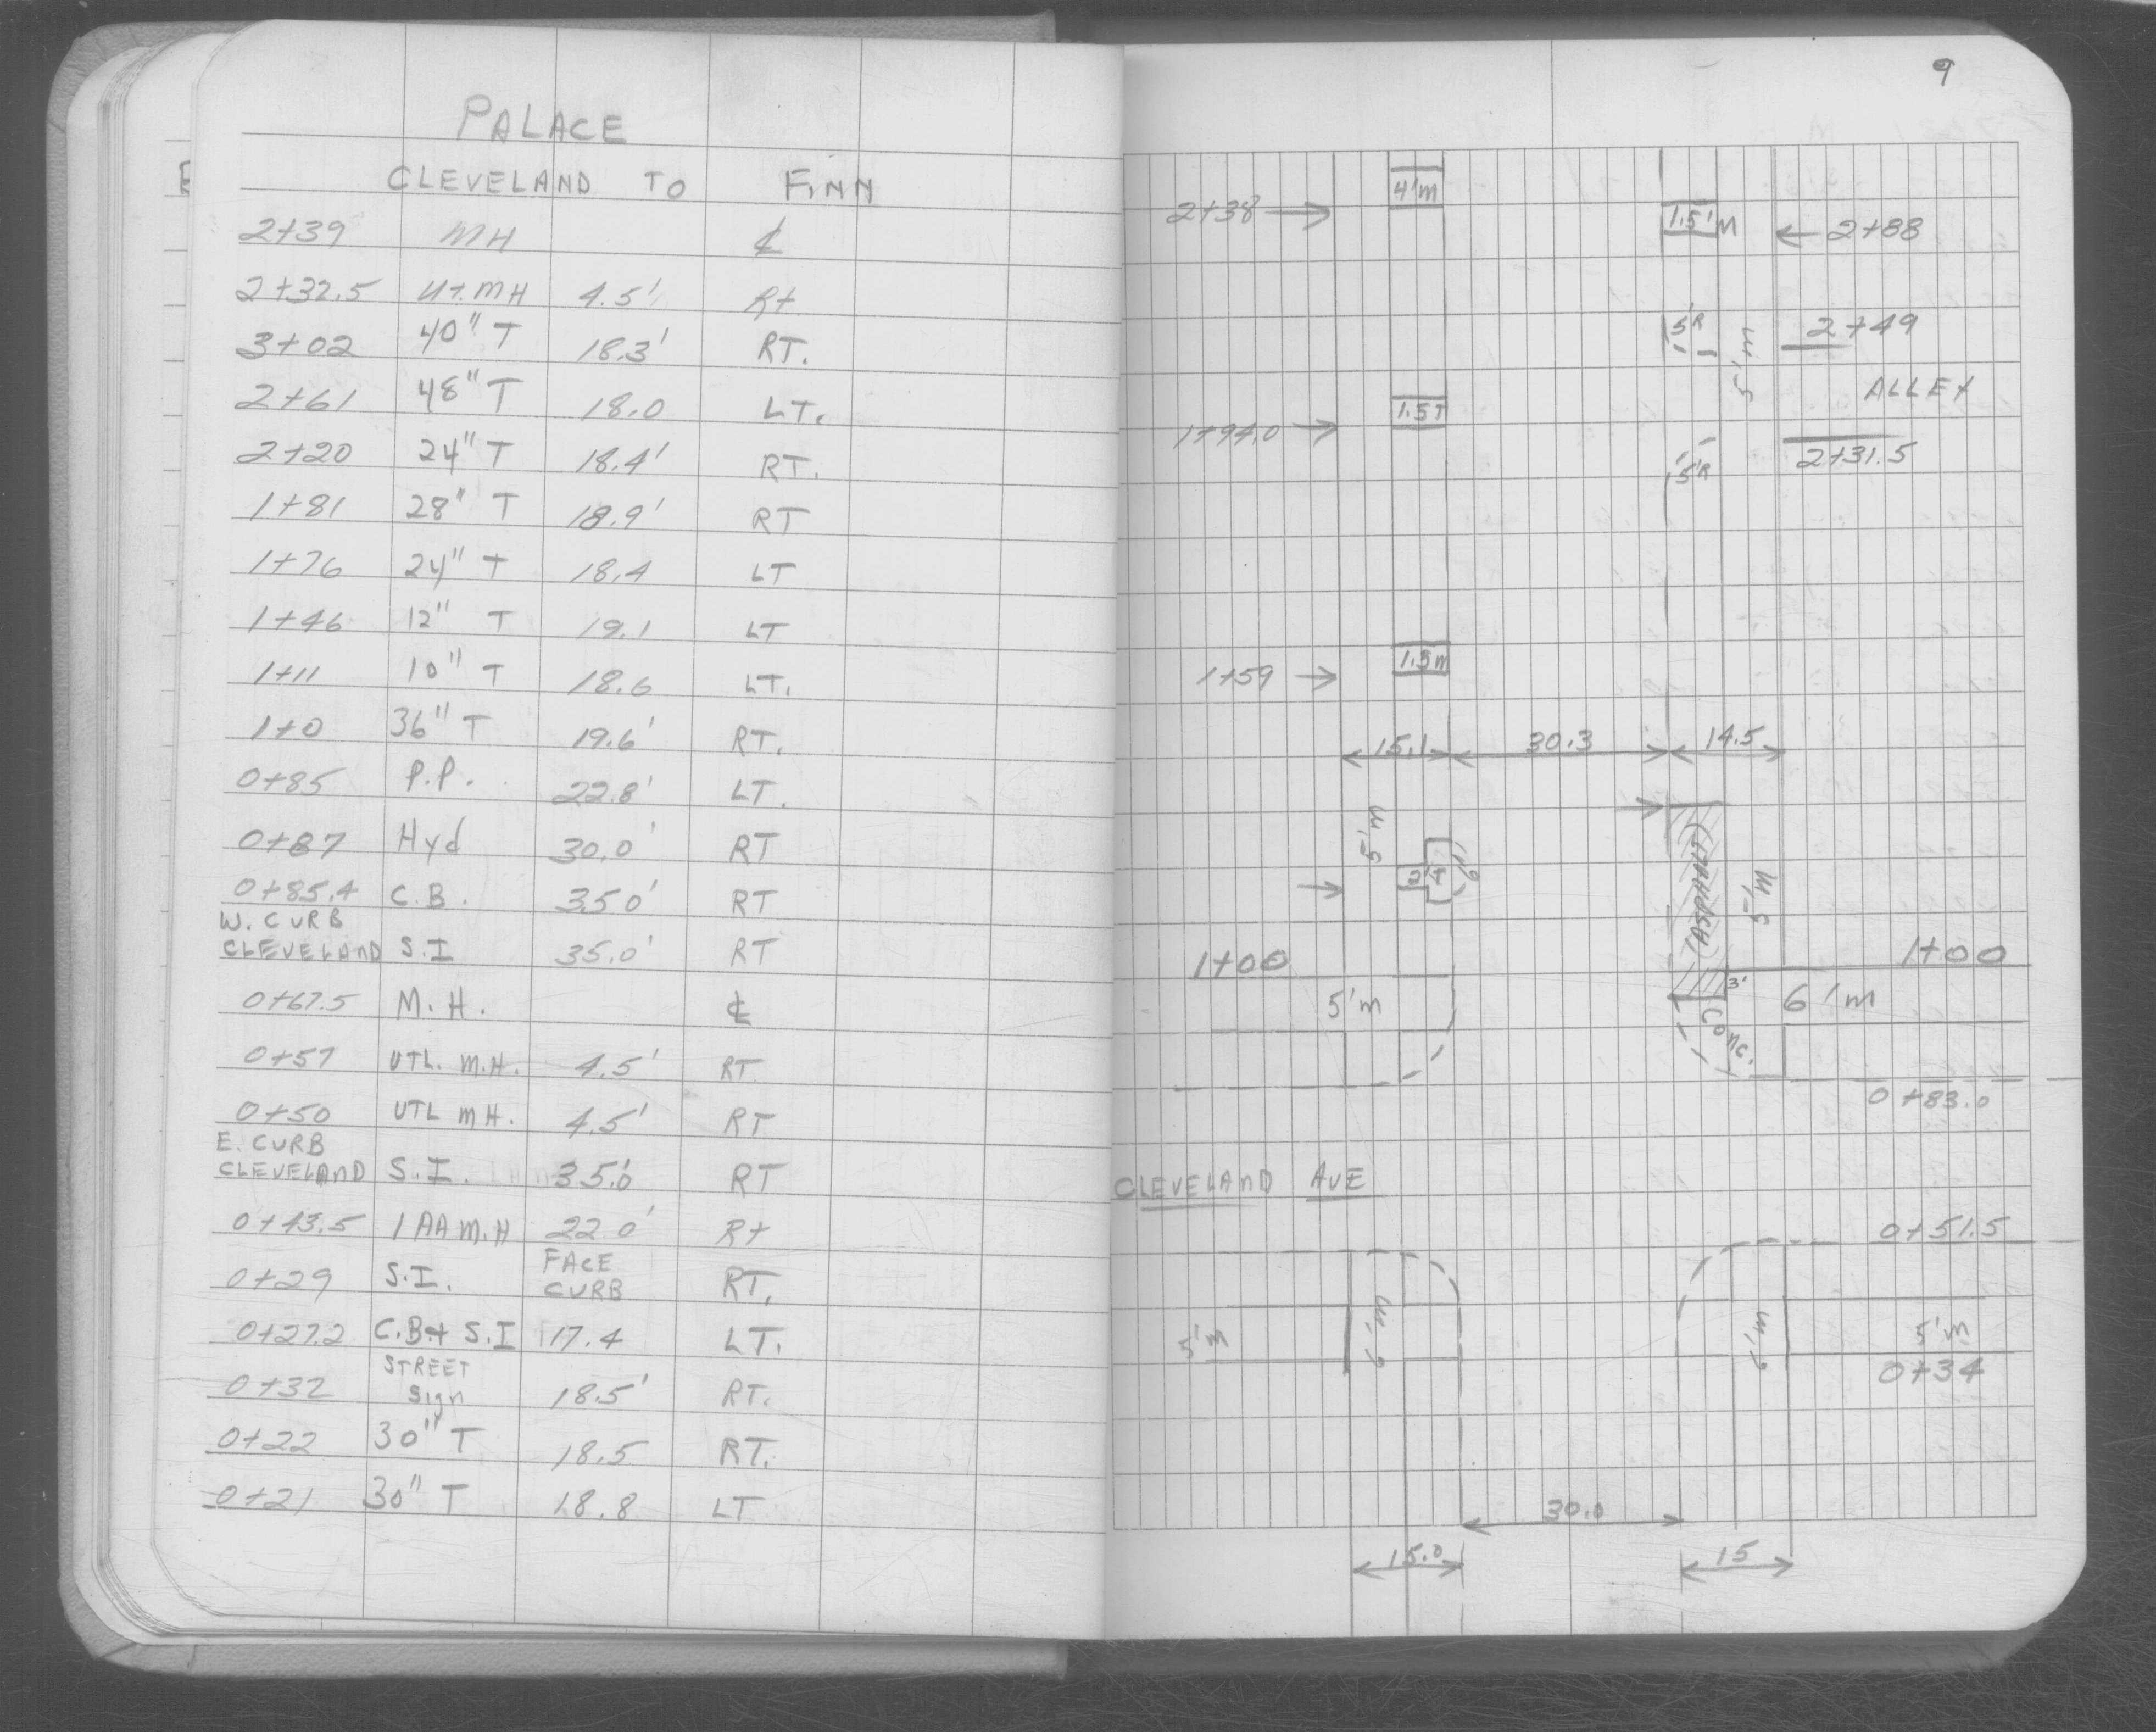 PALACE
CLEVELAND TO FINN
2+39 MH ℄
2+32.5 UT. MH 4.5' Rt
3+02 40" T 18.3' RT.
2+61 48" T 18.0 LT.
2+20 24" T 18.4' RT.
1+81 28" T 18.9' RT
1+76 24" T 18.4 LT
1+46 12" T 19.1 LT
1+11 10" T 18.6 LT.
1+0 36" T 19.6' RT.
0+85 P.P. 22.8' LT.
0+87 Hyd 30.0' RT
0+85.4 C.B. 35.0' RT
W. CURB
CLEVELAND S.I 35.0' RT
0+67.5 M.H. ℄
0+57 UTL. M.H. 4.5' RT
0+50 UTL MH. 4.5' RT
E. CURB
CLEVELAND S.I. 35.0' RT
0+43.5 1 AA M.H 22.0' Rt
0+29 S.I. FACE CURB RT.
0+27.2 C.B+ S.I 17.4 LT.
0+32 STREET Sign 18.5' RT.
0+22 30" T 18.5 RT.
0+21 30" T 18.8 LT
9
4'm
2+38 →
1.5'M
← 2+88
5'R
5'm
2+49
ALLEY
1.5T
1+94.0 →
2+31.5
5'R
1.5m
1+59 →
15.1 30.3 14.5
5'm
2' 4'
6'
(ASPHALT)
5'm
1+00
1+00
5'm
3'
6'm
Conc.
0+83.0
CLEVELAND AVE
0+51.5
6'm
6'm
5'm
5'm
0+34
30.0
15.0
15